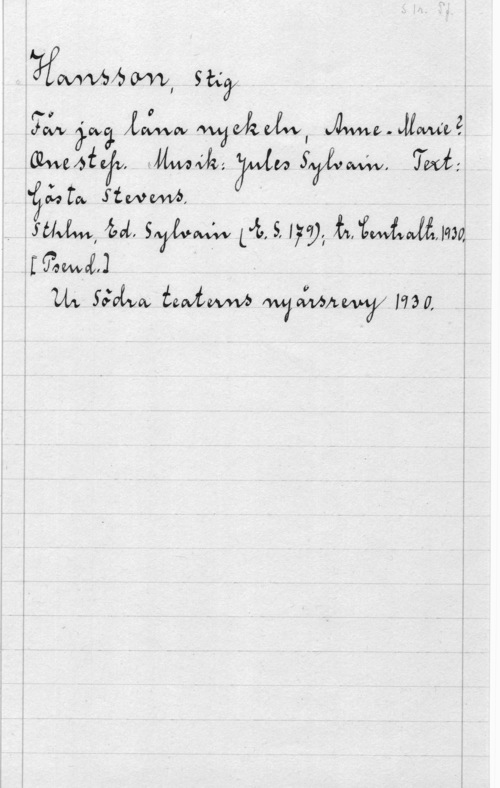 Hansson, Stig
Får jag låna nyckeln, Anne-Marie?
Onestep. Musik: Jules Sylvain. Text:
Gösta Stevens.
Sthlm, Ed. Sylvain (E.S. 179); tr. Centraltr. 1930.
[Pseud.]
Ur Södra teaterns nyårsrevy 1930.